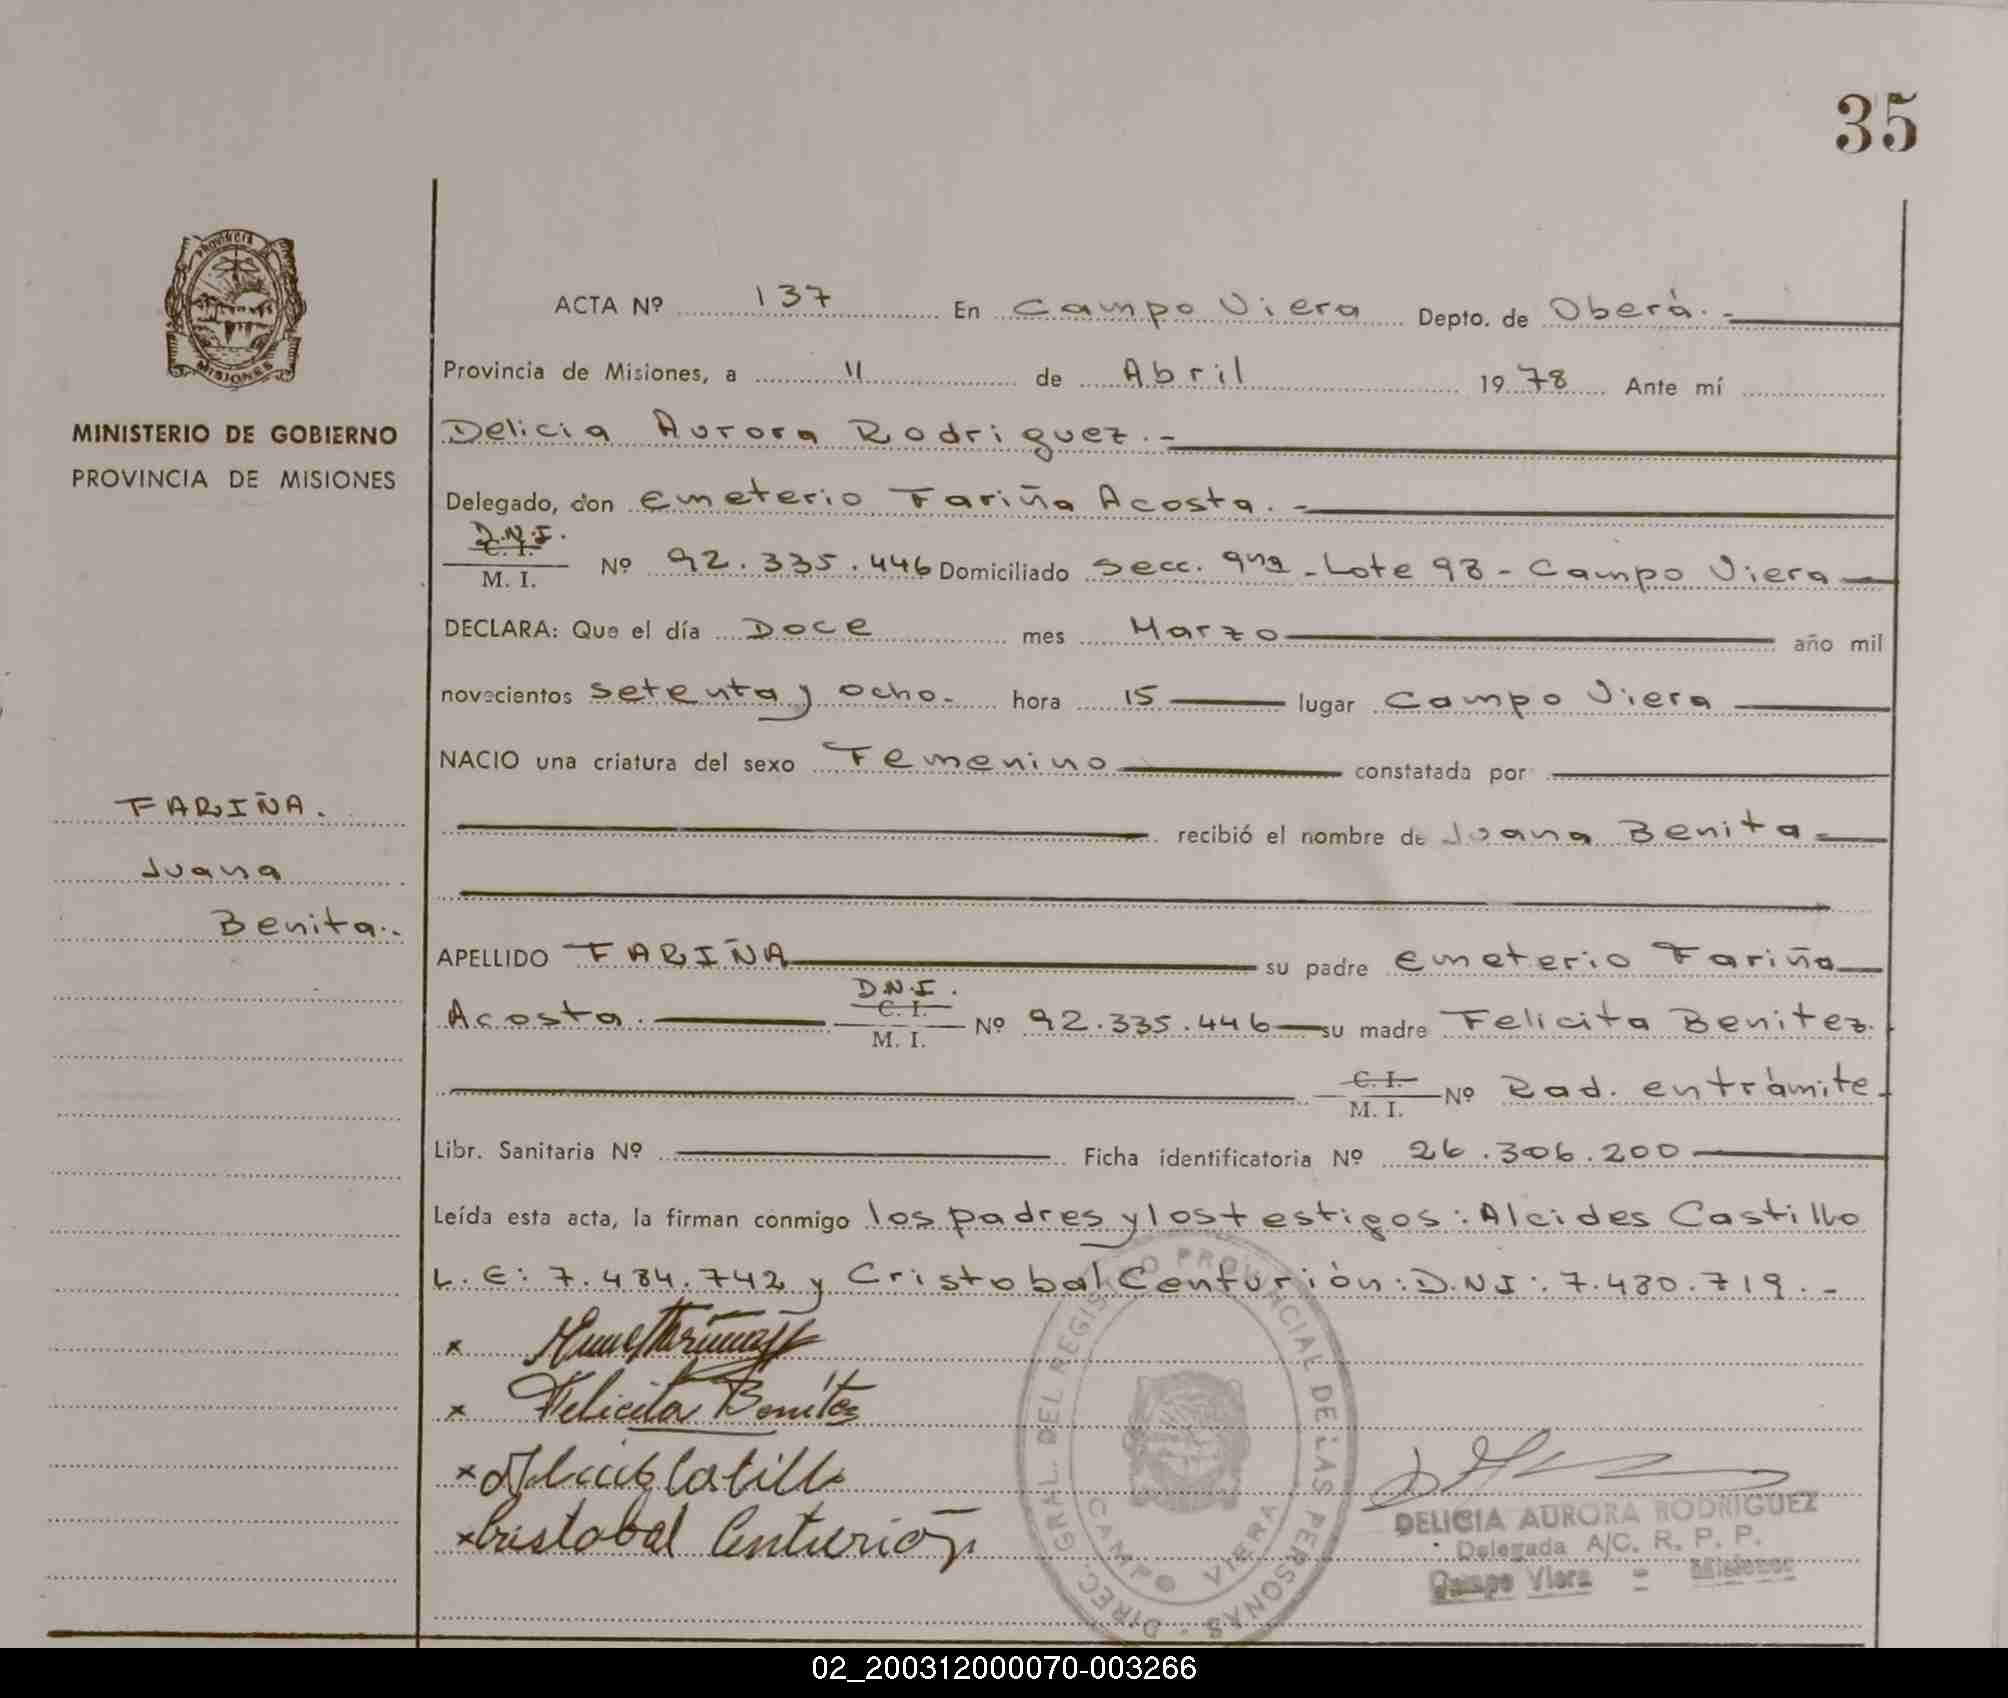 35
PROVINCIA
MISIONES
MINISTERIO DE GOBIERNO
PROVINCIA DE MISIONES
FARIÑA.
Juana
Benita.-
ACTA Nº 137 En Campo Viera Depto. de Oberá.-
Provincia de Misiones, a 11 de Abril 1978 Ante mí
Delicia Aurora Rodriguez.-
Delegado, don Emeterio Fariña Acosta.-
D.N.I.
C. I.
M. I. Nº 92.335.446 Domiciliado Secc. 9na - Lote 98 - Campo Viera
DECLARA: Que el día Doce mes Marzo año mil
novecientos setenta y ocho.- hora 15 lugar Campo Viera
NACIO una criatura del sexo Femenino constatada por
recibió el nombre de Juana Benita
APELLIDO FARIÑA su padre Emeterio Fariña
D.N.I.
C. I.
Acosta. M. I. Nº 92.335.446 su madre Felicita Benitez.
C. I.
M. I. Nº Rad. entrámite
Libr. Sanitaria Nº Ficha identificatoria Nº 26.306.200
Leída esta acta, la firman conmigo los padres y los testigos: Alcides Castillo
L.E: 7.484.742 y Cristobal Centurión: D.N.I.: 7.480.719.-
x
x Felicita Benítes
x Alcides Castillo
x Cristobal Centurión
DIREC. GRAL. DEL REGISTRO PROVINCIAL DE LAS PERSONAS
CAMPO VIERA
DELICIA AURORA RODRIGUEZ
Delegada A/C. R. P. P.
Campo Viera = Misiones
02_200312000070-003266